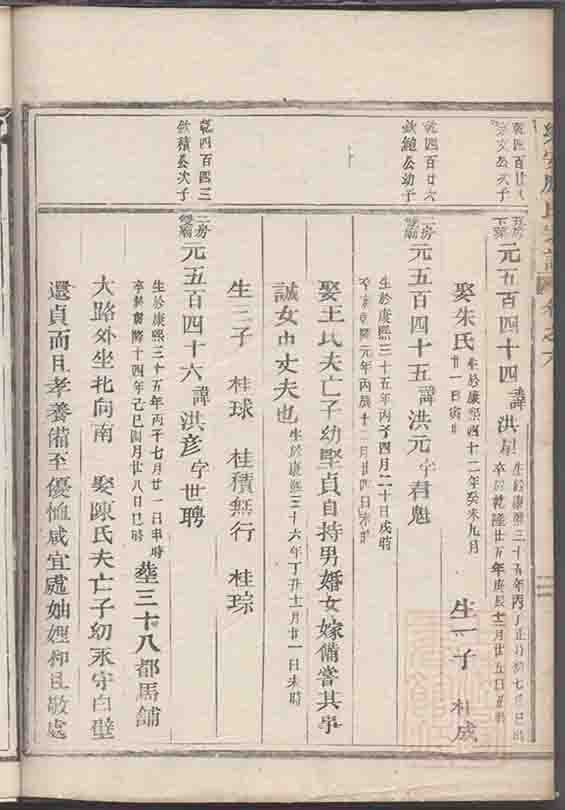 乾四百廿
公次子
元五百四十四諱洪
生於康熙三十五年丙子正月初七日時
卒於乾隆廿五年庚辰十二月廿五日時
娶朱氏
生於康熙四十二年癸未九月
廿一日寅
生一子 桂成
乾四百廿六
欽縋公幼子
二房
元五百四十五諱洪元字君魁
生於康熙三十五年丙子四月二十日戌時
乾隆元年丙辰十二月廿四日未時
娶王氏夫亡子幼堅貞自持男婚女嫁備嘗其辛
誠女中丈夫也
生於康熙三十六年丁丑十一月廿一日未時
生三子 桂球 桂積無行 桂琮
乾四百四三
欽積公次子
二房
元五百四十六諱洪彥字世聘
生於康熙三十五年丙子七月廿一日申時
卒於乾隆十四年己巳四月廿八日巳時
塟三十八都馬舖
大路外坐北向南 娶陳氏夫亡子幼永守白璧
還貞而且孝養備至優恤咸宜處妯娌和且敬處